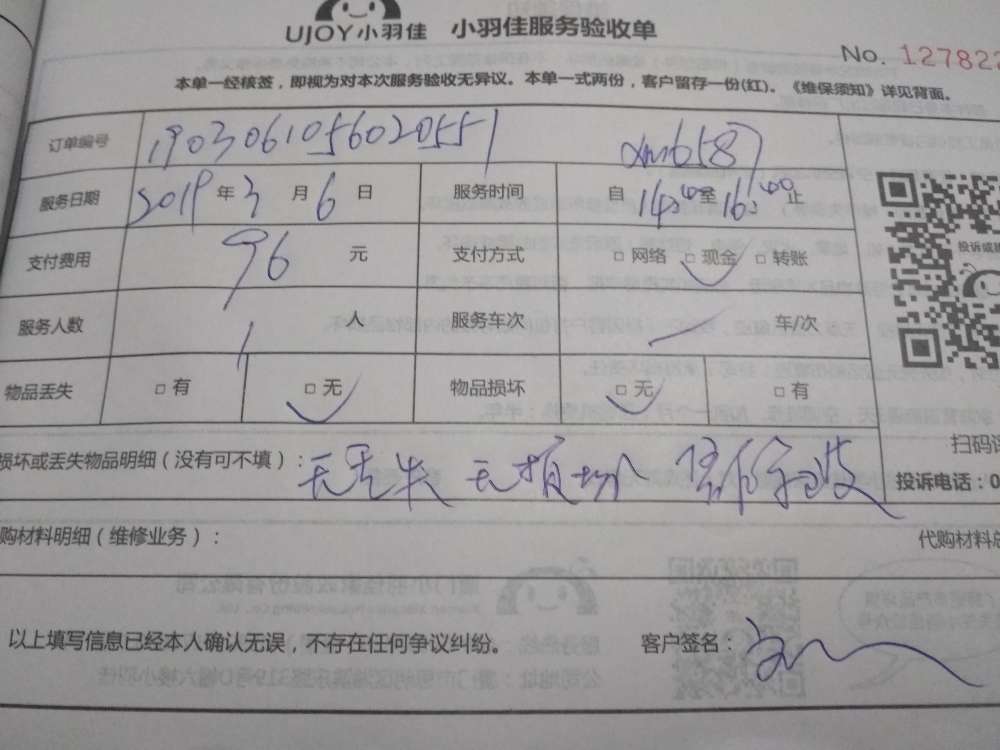 UJOY小羽佳 小羽佳服务验收单
No. 127822
本单一经核签，即视为对本次服务验收无异议。本单一式两份，客户留存一份(红)。《维保须知》详见背面。
订单编号 190306105602055 xm6587
服务日期 2019 年 3 月 6 日 服务时间 自 14:00 至 16:00 止
支付费用 96 元 支付方式 □ 网络 □ 现金 □ 转账
投诉或
服务人数 1 人 服务车次 车/次
物品丢失 □ 有 □ 无 物品损坏 □ 无 □ 有
扫码
损坏或丢失物品明细（没有可不填）： 无丢失 无损坏
投诉电话：0
购材料明细（维修业务）： 代购材料
以上填写信息已经本人确认无误，不存在任何争议纠纷。 客户签名：